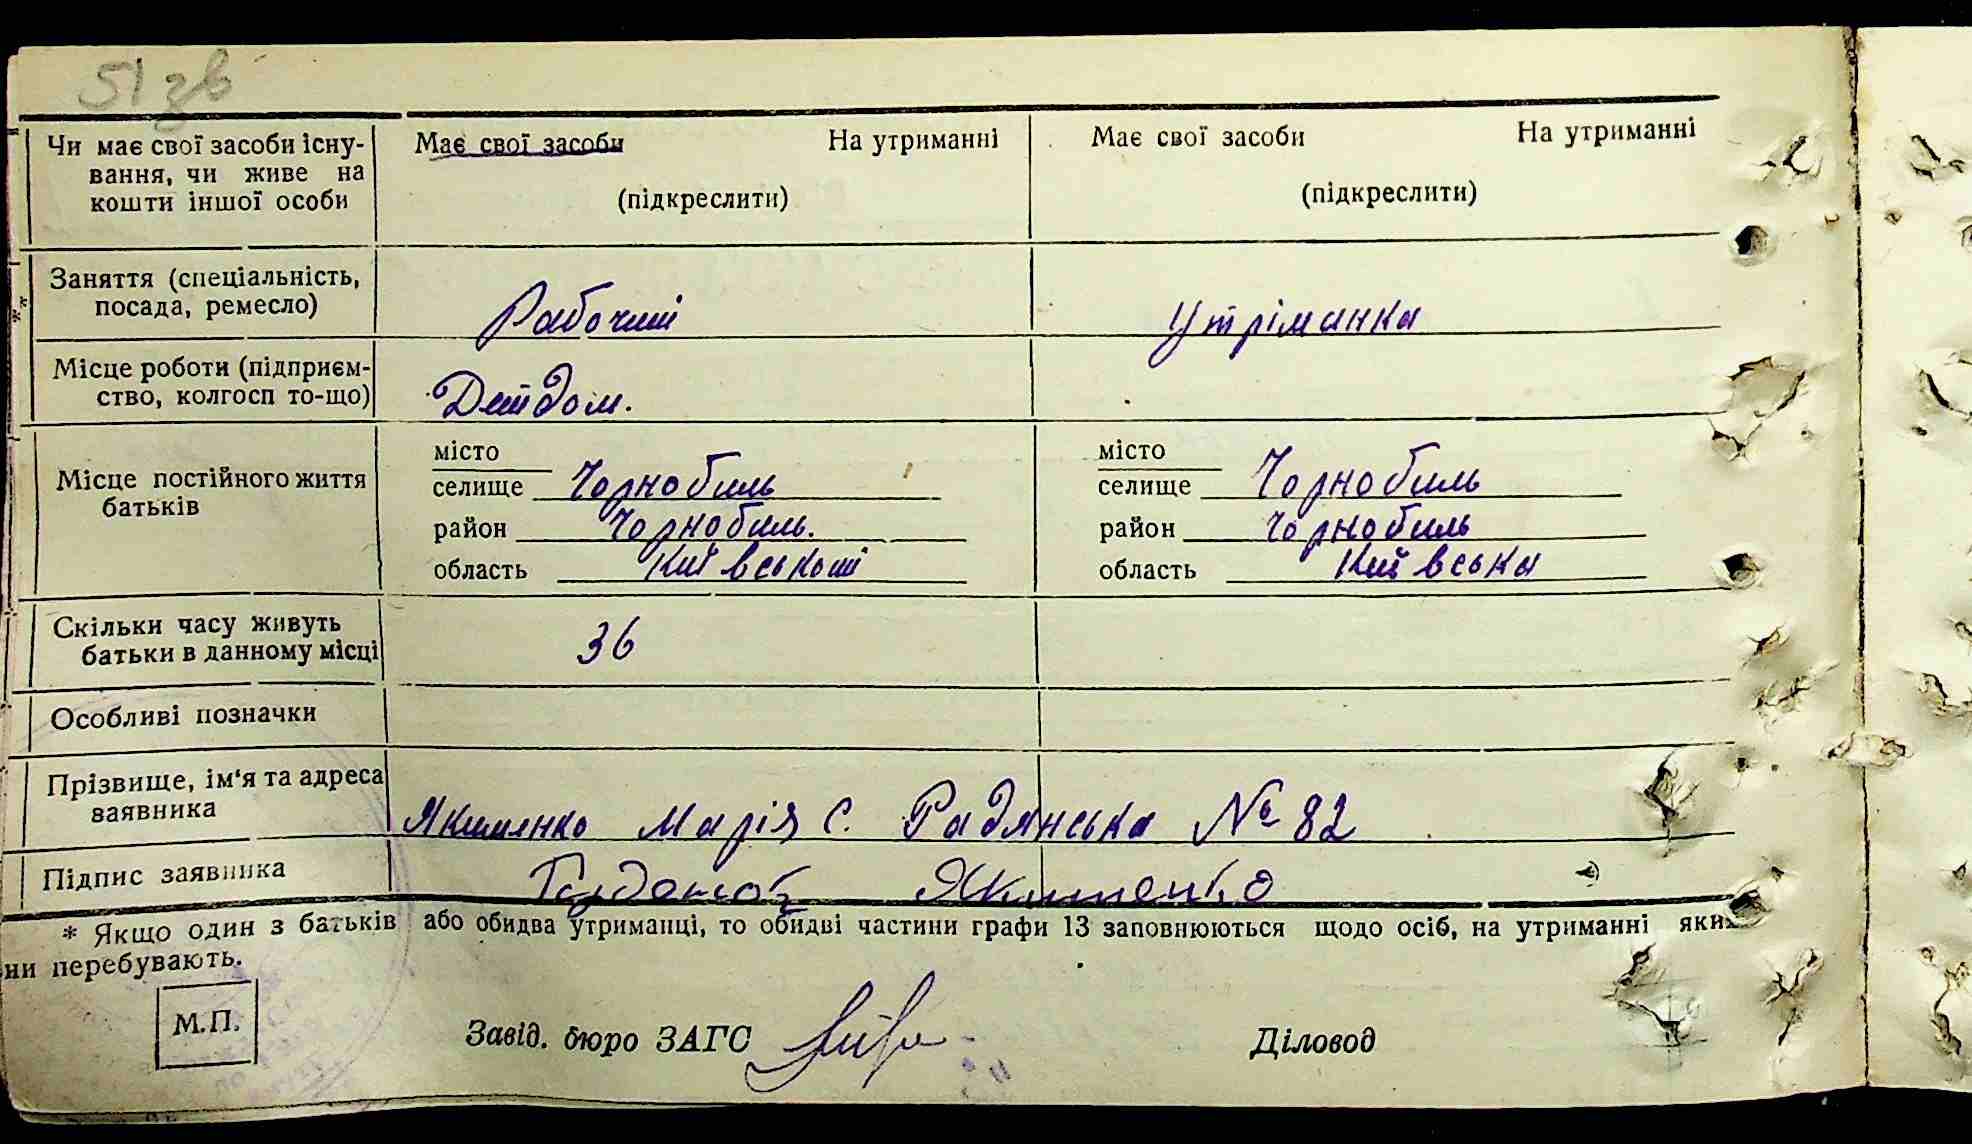 51 зв
Чи має свої засоби існу-
вання, чи живе на
кошти іншої особи
Має свої засоби На утриманні
(підкреслити)
Має свої засоби На утриманні
(підкреслити)
Заняття (спеціальність,
посада, ремесло)
Рабочий
Утріманка
Місце роботи (підприєм-
ство, колгосп то-що)
Дет дом.
Місце постійного життя
батьків
місто
селище Чорнобиль
район Чорнобиль.
область Київський
місто
селище Чорнобиль
район Чорнобиль
область Київська
Скільки часу живуть
батьки в данному місці
36
Особливі позначки
Прізвище, ім'я та адреса
заявника
Якименко Марія С. Радянська № 82
Підпис заявника
Якименко
* Якщо один з батьків або обидва утриманці, то обидві частини графи 13 заповнюються щодо осіб, на утриманні яких
ни перебувають.
М.П.
Завід. бюро ЗАГС
Діловод